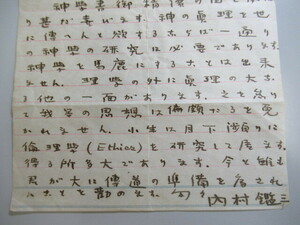 神学書御恰
り甚だ貴いえす。神の眞理を世
に傳へんと欲するならば一通り
の神学の研究は必要であります。
神学を馬鹿にすることは出来
ません。理学の外に眞理の大な
る他の一面があります。之を怠り
て我等の思想は偏頗たるを免
かれません。小生は目下頻りに
倫理学(Ethics)を研究して居ます。
得る所多大であります。今と雖も
君が大に傳道の準備を為され
んことを勧めます。匆々
内村鑑三